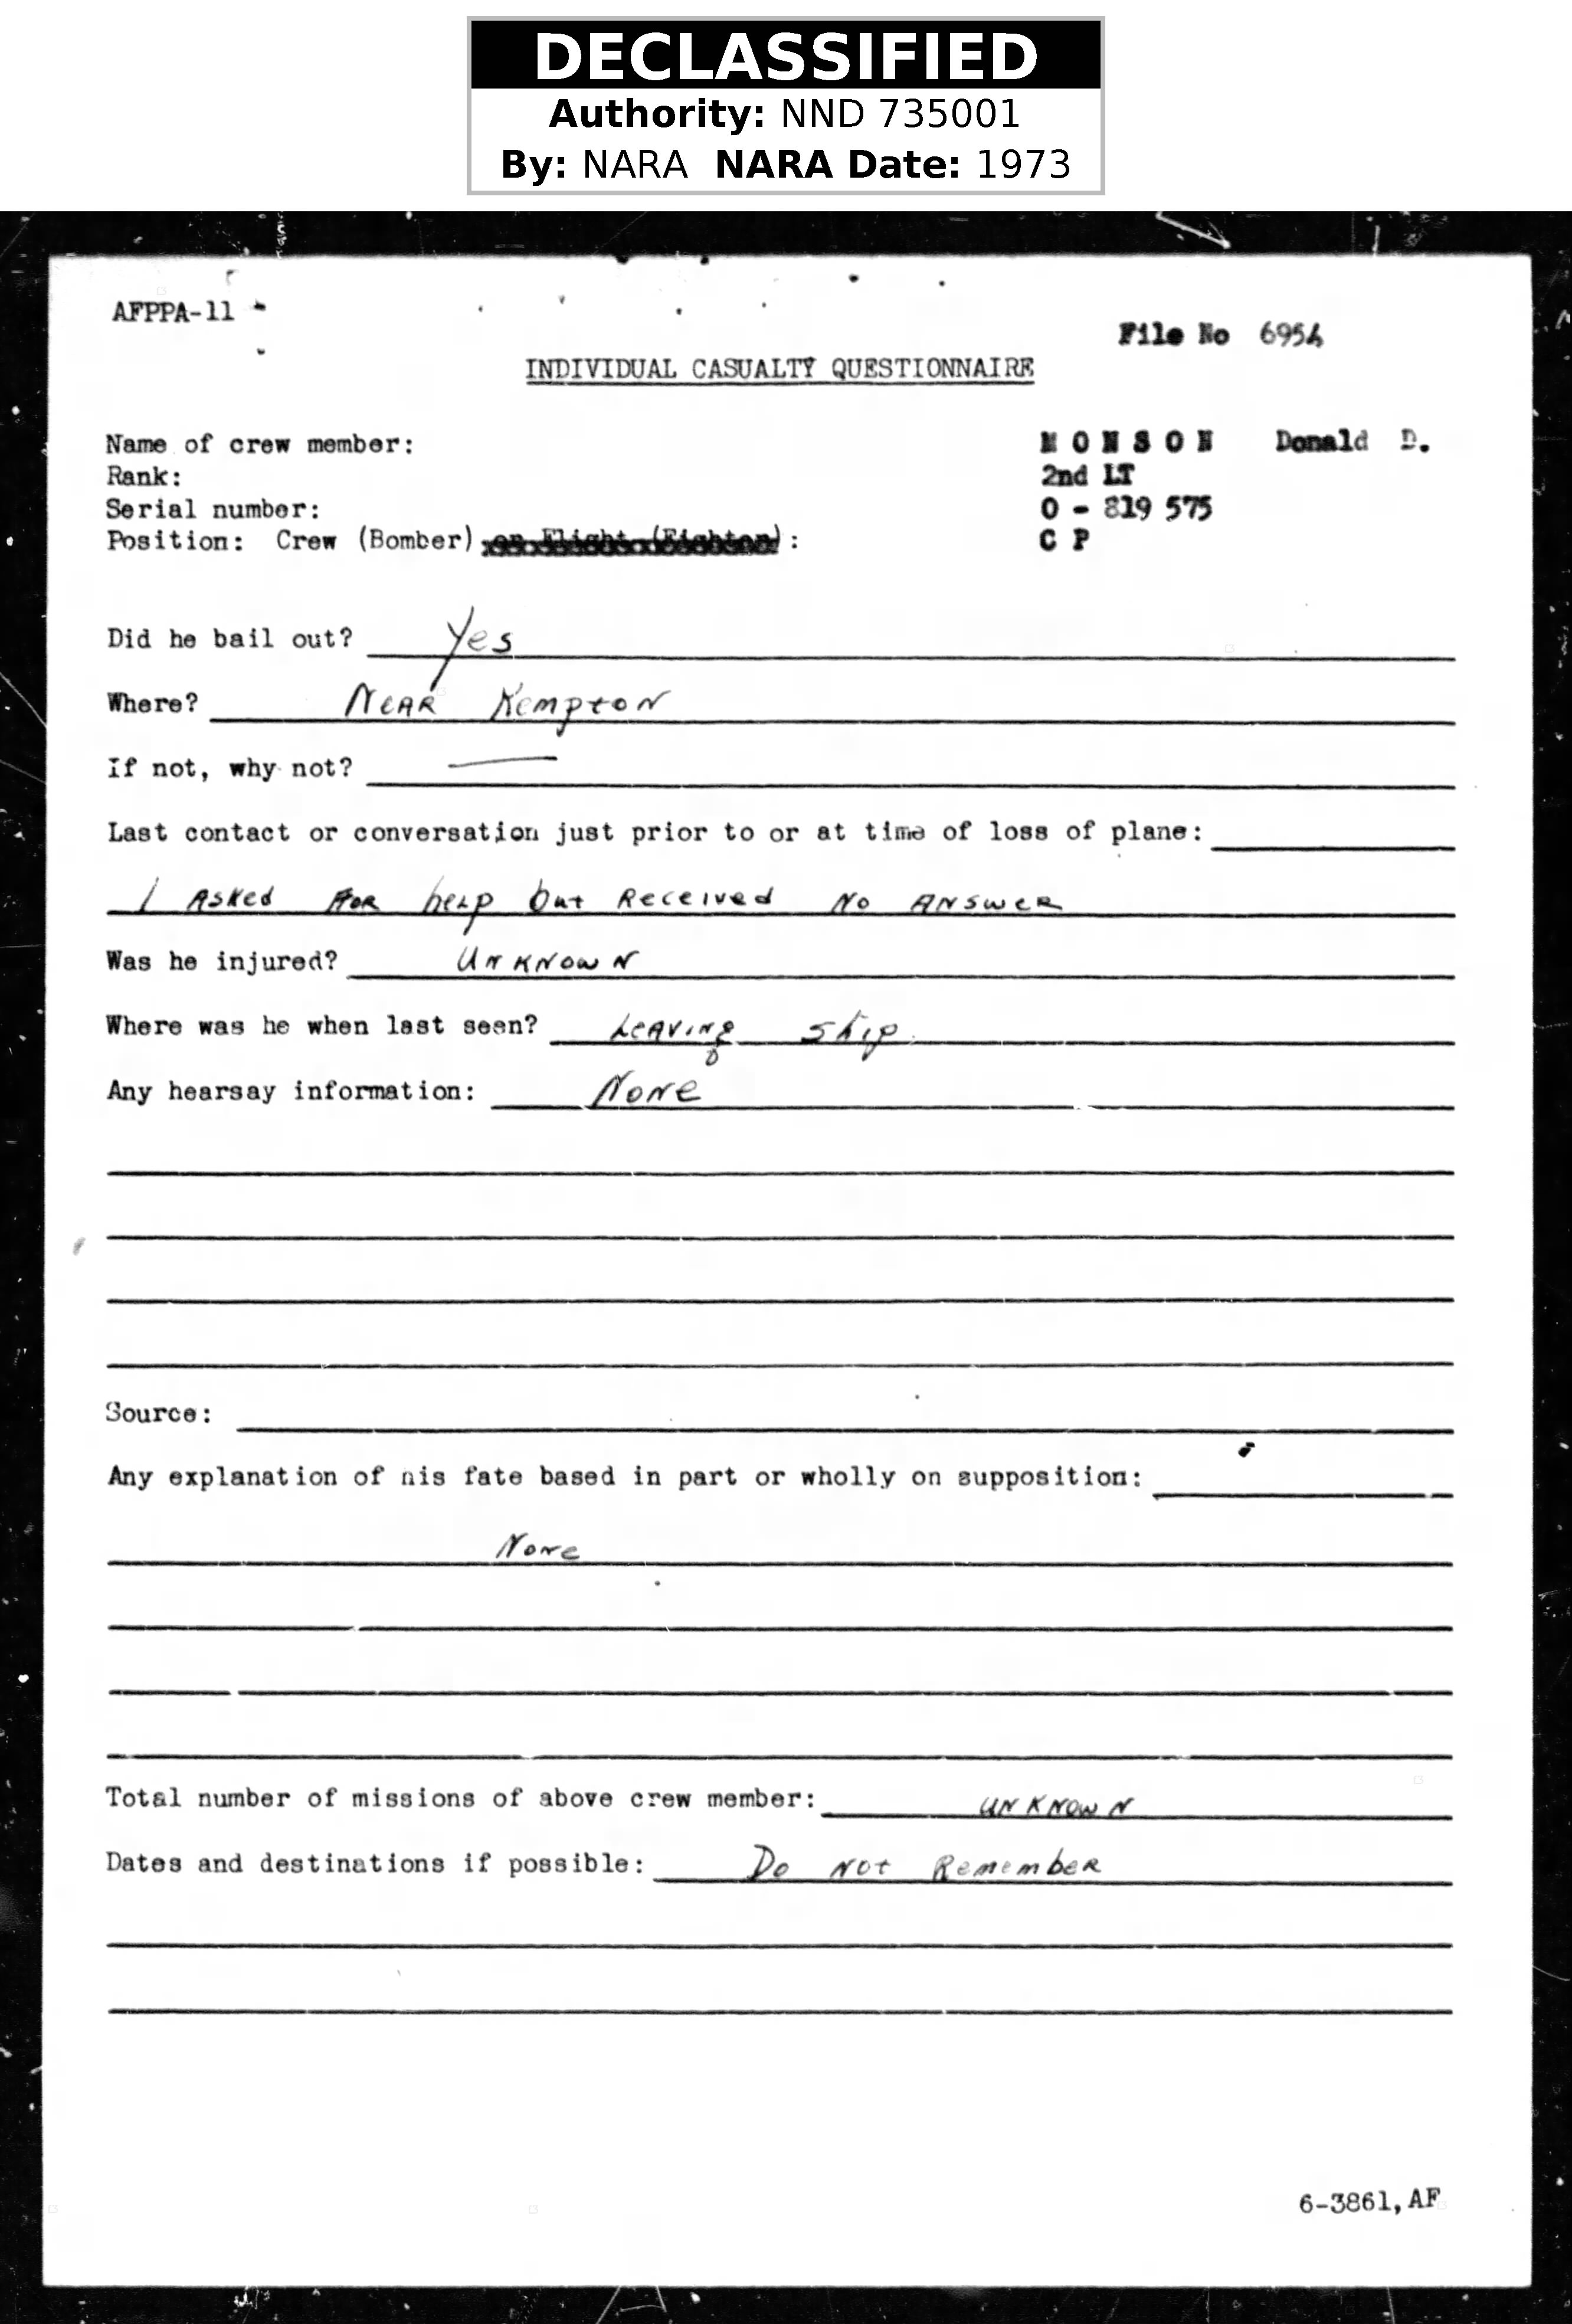 DECLASSIFIED
Authority: NND 735001
By: NARA NARA Date: 1973
AFPPA-11
File No 6954
INDIVIDUAL CASUALTY QUESTIONNAIRE
Name of crew member: MONSON Donald D.
Rank: 2nd LT
Serial number: O - 819 575
Position: Crew (Bomber) or Flight (Fighter): C P
Did he bail out? Yes
Where? Near Kempton
If not, why not? —
Last contact or conversation just prior to or at time of loss of plane:
I Asked For help but Received No Answer
Was he injured? Unknown
Where was he when last seen? Leaving ship
Any hearsay information: None
Source:
Any explanation of his fate based in part or wholly on supposition:
None
Total number of missions of above crew member: UNKNOWN
Dates and destinations if possible: Do Not Remember
6-3861,AF